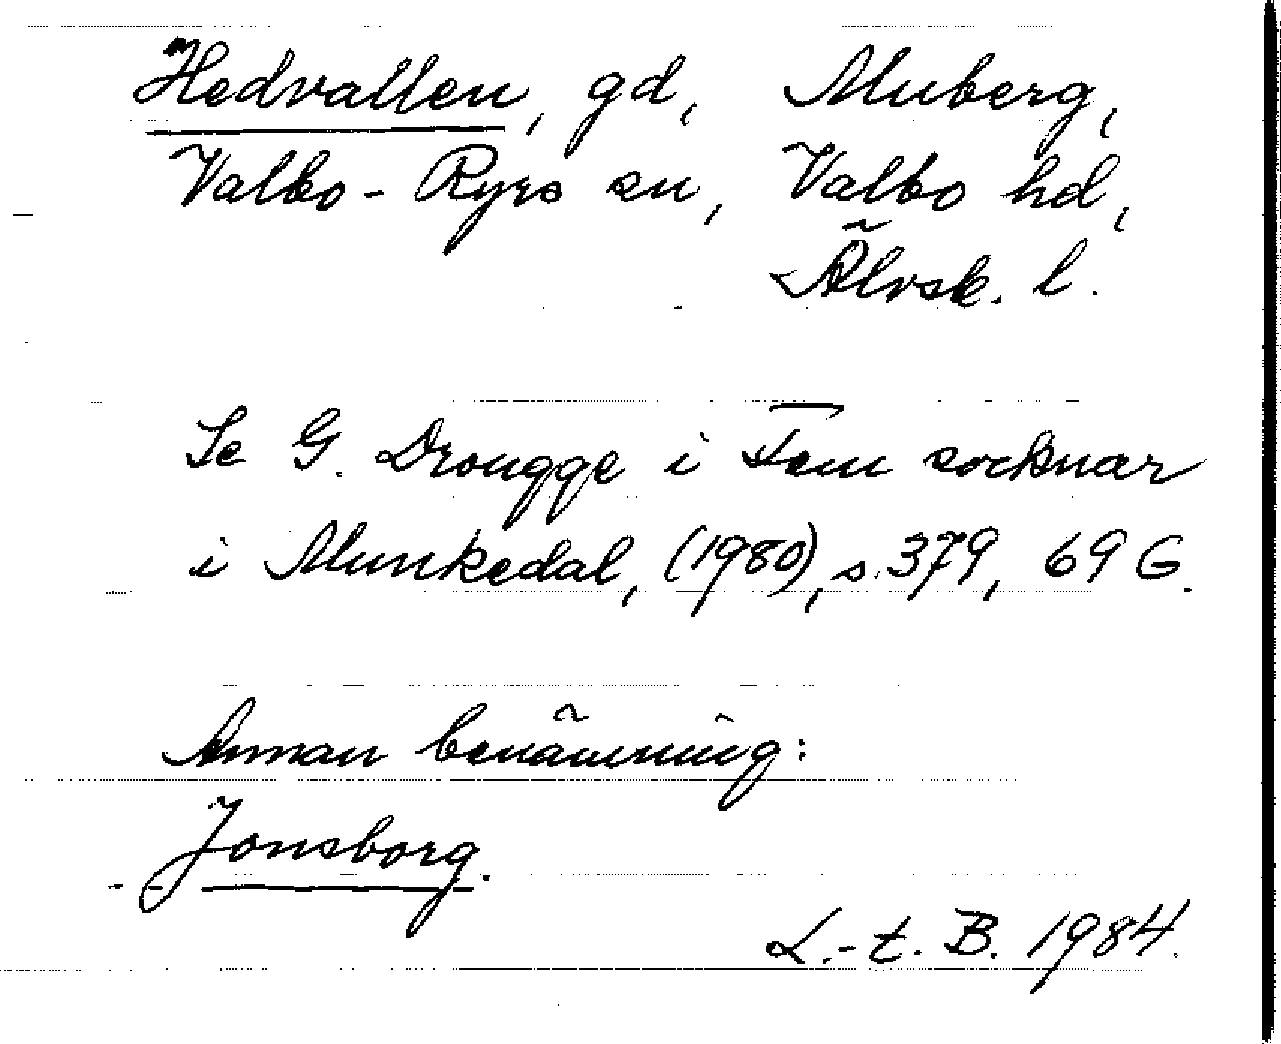 Hedvallen, gd, Muberg,
Valbo-Ryrs sn, Valbo hd,
Älvsb. l.
Se G. Drougge i Fem socknar
i Munkedal, (1980), s. 379, 69 G.
Annan benämning:
Jonsborg.
L.-t. B. 1984.